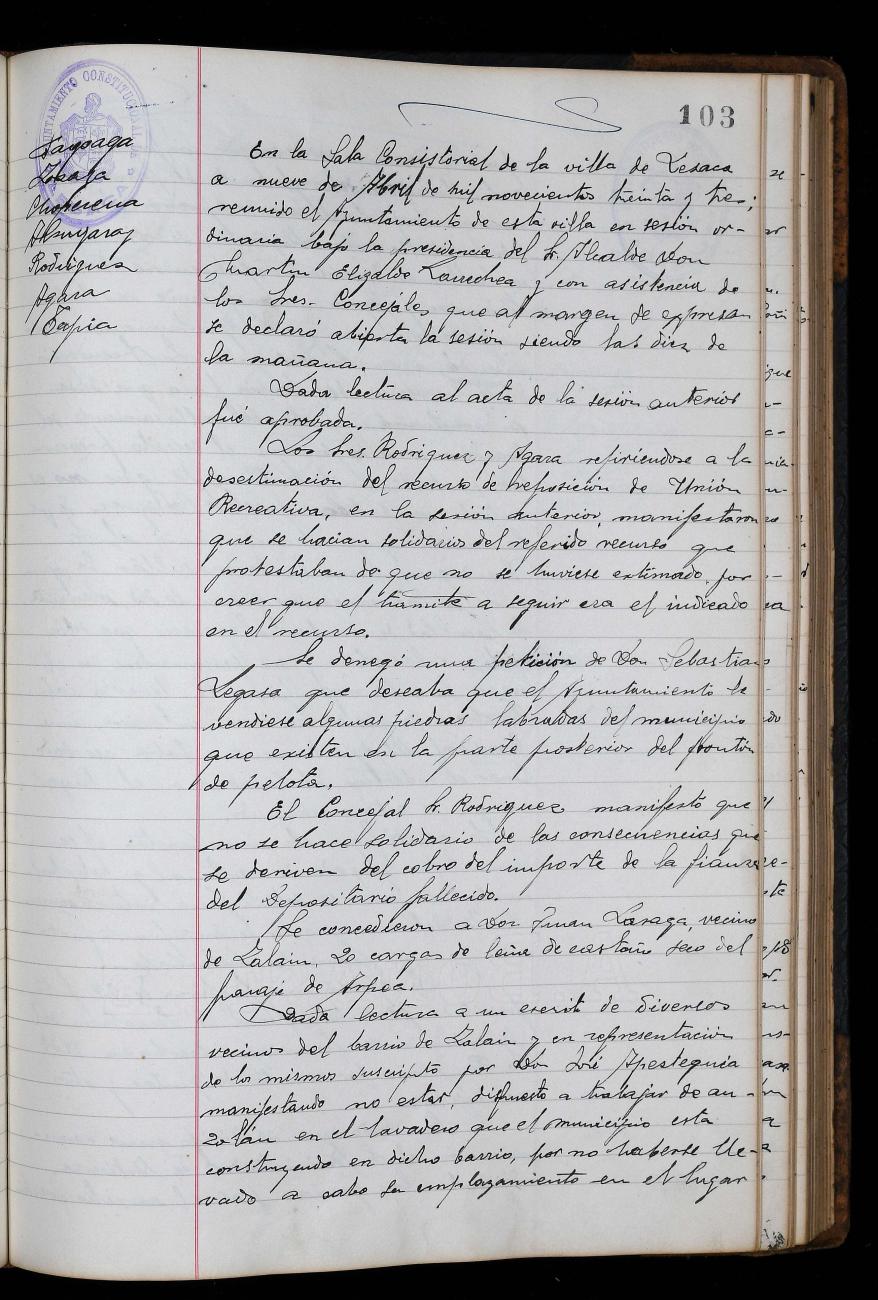 103
AYUNTAMIENTO CONSTITUCIONAL
Tapia
Rodriguez
Agara
En la Sala Consistorial de la villa de Lesaca
a nueve de Abril de mil novecientos treinta y tres;
reunido el Ayuntamiento de esta villa en sesión or-
dinaria bajo la presidencia del Sr. Alcalde Don
Martin Elizalde Larrechea y con asistencia de
los Sres. Concejales que al margen se expresan
se declaró abierta la sesión siendo las diez de
la mañana.
Dada lectura al acta de la sesión anterior
fué aprobada.
Los Sres. Rodriguez y Agara refiriendose a la
desestimación del recurso de reposición de Unión
Recreativa, en la sesión anterior, manifestaron
que se hacian solidarios del referido recurso que
protestaban de que no se huviese estimado, por
creer que el tramite a seguir era el indicado
en el recurso.
Se denegó una petición de Don Sebastian
Legasa que deseaba que el Ayuntamiento le
vendiese algunas piedras labradas del municipio
que existen en la parte posterior del frontón
de pelota.
El Concejal Sr. Rodriguez manifestó que
no se hace solidario de las consecuencias que
se deriven del cobro del importe de la fianza
del Depositario fallecido.
Se concedieron a Don Juan Lasaga, vecino
de Zalain, 20 cargas de leña de castaño seco del
paraje de Arpea.
Dada lectura a un escrito de diversos
vecinos del barrio de Zalain y en representación
de los mismos suscripto por Don José Apesteguia
manifestando no estar dispuesto a trabajar de au-
zolán en el lavadero que el municipio esta
construyendo en dicho barrio, por no haberse lle-
vado a cabo su emplazamiento en el lugar